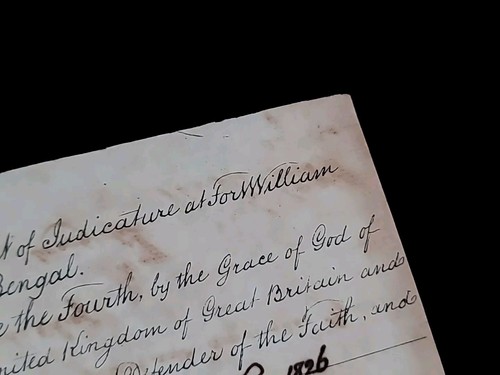 of Judicature at Fort William
Bengal.
the Fourth, by the Grace of God of
United Kingdom of Great Britain and
Defender of the Faith, and
1826